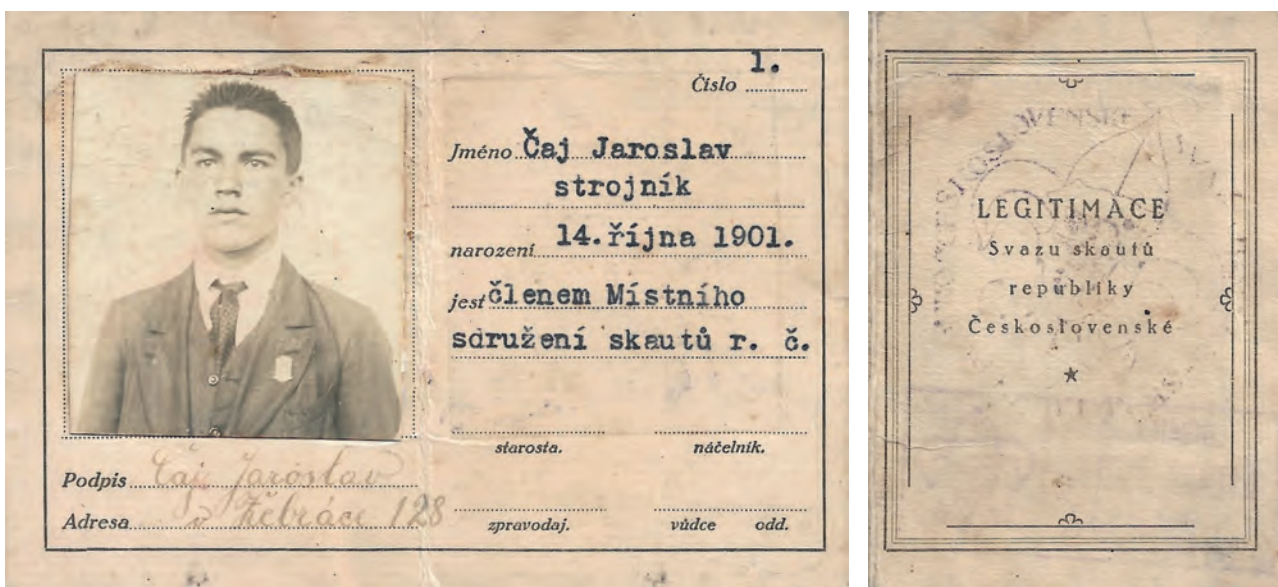 Číslo 1.
Jméno Čaj Jaroslav
strojník
narození 14. října 1901.
jest členem Místního
sdružení skautů r. č.
starosta. náčelník.
zpravodaj. vůdce odd.
Podpis Čaj Jaroslav
Adresa v Žebráce 128
LEGITIMACE
Svazu skautů
republiky
Československé